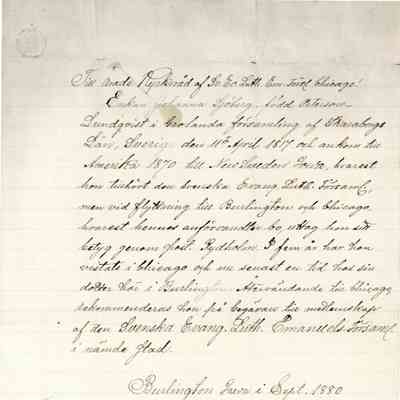 Till ärade Kyrkoråd af Sv. Ev. Luth. Em. förs. Chicago!
Enkan Johanna Sjöberg, född Peterson
Lundqvist i Gerlanda församling af Skaraborgs
Län, Sverige den 11te April 1817 och ankom till
Amerika 1870 till New Sweden Iowa, hvarest
hon tillhört den svenska Evang. Luth. Församl.
men vid flyttning till Burlington och Chicago,
hvarest hennes anförvandter bo, uttog hon sitt
betyg genom Past. Rydholm. I fem år har hon
vistats i Chicago och nu senast en tid hos sin
dotter här i Burlington. Återvändande till Chicago
rekommenderas hon på begäran till medlemskap
af den Svenska Evang. Luth. Emanuels Församl.
i nämde stad.
Burlington Iowa i Sept. 1880